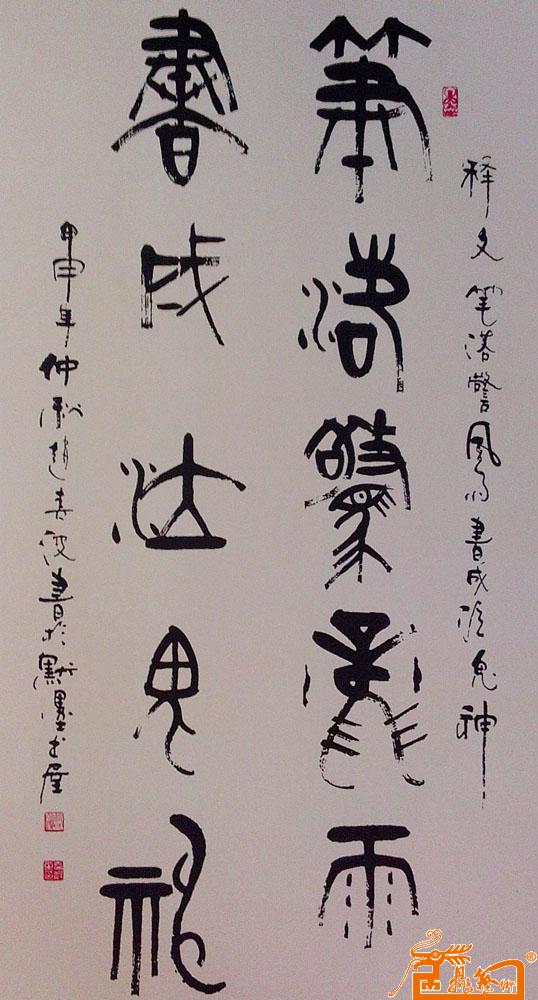 释文 笔落警风雨書成泣鬼神
筆落驚風雨
書成泣鬼神
甲申年仲秋趙春波書於默墨书屋